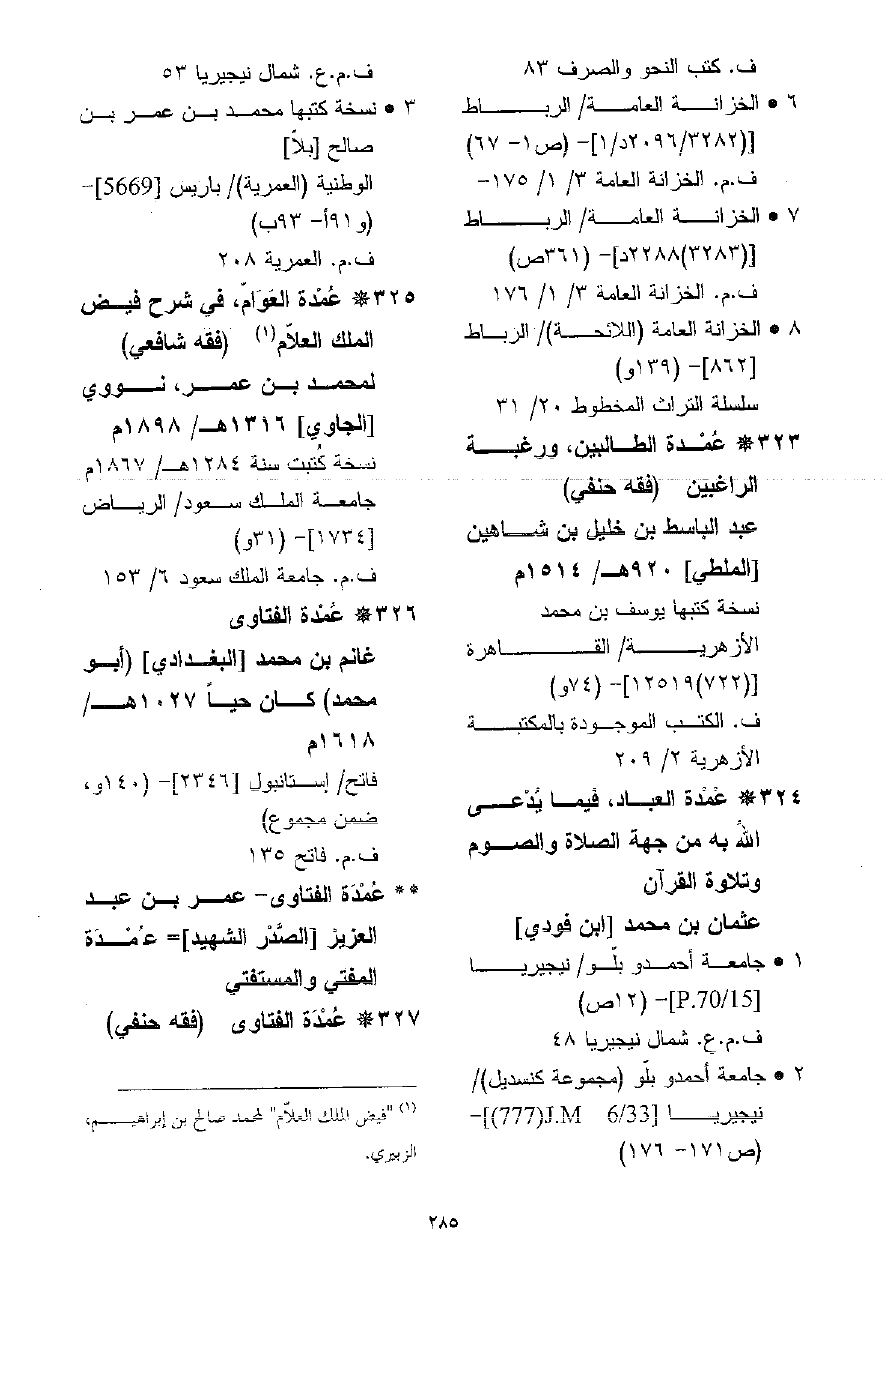 ف. كتب النحو والصرف ٨٣
٦ • الخزانة العامة/ الرباط
[(٣٢٨٢)٢٠٩٦/د/١]- (ص١- ٦٧)
ف.م. الخزانة العامة ٣/ ١/ ١٧٥-
٧ • الخزانة العامة/ الرباط
[(٣٢٨٣)٢٢٨٨د]- (٣٦١ص)
ف.م. الخزانة العامة ٣/ ١/ ١٧٦
٨ • الخزانة العامة (اللائحة)/ الرباط
[٨٦٢]- (١٣٩و)
سلسلة التراث المخطوط ٢٠/ ٣١
٣٢٣* عُمْدة الطالبين، ورغبة
الراغبين (فقه حنفي)
عبد الباسط بن خليل بن شاهين
[الملطي] ٩٢٠هـ/ ١٥١٤م
نسخة كتبها يوسف بن محمد
الأزهرية/ القاهرة
[(٧٢٢)١٢٥١٩]- (٧٤و)
ف. الكتب الموجودة بالمكتبة
الأزهرية ٢/ ٢٠٩
٣٢٤* عُمْدة العباد، فيما يُدْعى
اللهُ به من جهة الصلاة والصوم
وتلاوة القرآن
عثمان بن محمد [ابن فودي]
١ • جامعة أحمدو بلّو/ نيجيريا
[P.70/15]- (١٢ص)
ف.م.ع. شمال نيجيريا ٤٨
٢ • جامعة أحمدو بلّو (مجموعة كنسديل)/
نيجيريا [J.M 6/33(777)]-
(ص١٧١- ١٧٦)
ف.م.ع. شمال نيجيريا ٥٣
٣ • نسخة كتبها محمد بن عمر بن
صالح [بلاً]
الوطنية (العمرية)/ باريس [5669]-
(و٩١أ- ٩٣ب)
ف.م. العمرية ٢٠٨
٣٢٥* عُمْدة العَوَامّ، في شرح فيض
الملك العلاّم(١) (فقه شافعي)
لمحمد بن عمر، نووي
[الجاوي] ١٣١٦هـ/ ١٨٩٨م
نسخة كُتبت سنة ١٢٨٤هـ/ ١٨٦٧م
جامعة الملك سعود/ الرياض
[١٧٣٤]- (٣١و)
ف.م. جامعة الملك سعود ٦/ ١٥٣
٣٢٦* عُمْدة الفتاوى
غانم بن محمد [البغدادي] (أبو
محمد) كان حياً ١٠٢٧هـ/
١٦١٨م
فاتح/ إستانبول [٢٣٤٦]- (١٤٠و،
ضمن مجموع)
ف.م. فاتح ١٣٥
** عُمْدَة الفتاوى- عمر بن عبد
العزيز [الصَّدْر الشهيد]= عُمْدَة
المفتي والمستفتي
٣٢٧* عُمْدَة الفتاوى (فقه حنفي)
(١) "فيض الملك العلاّم" لمحمد صالح بن إبراهيم،
الزبيري.
٢٨٥